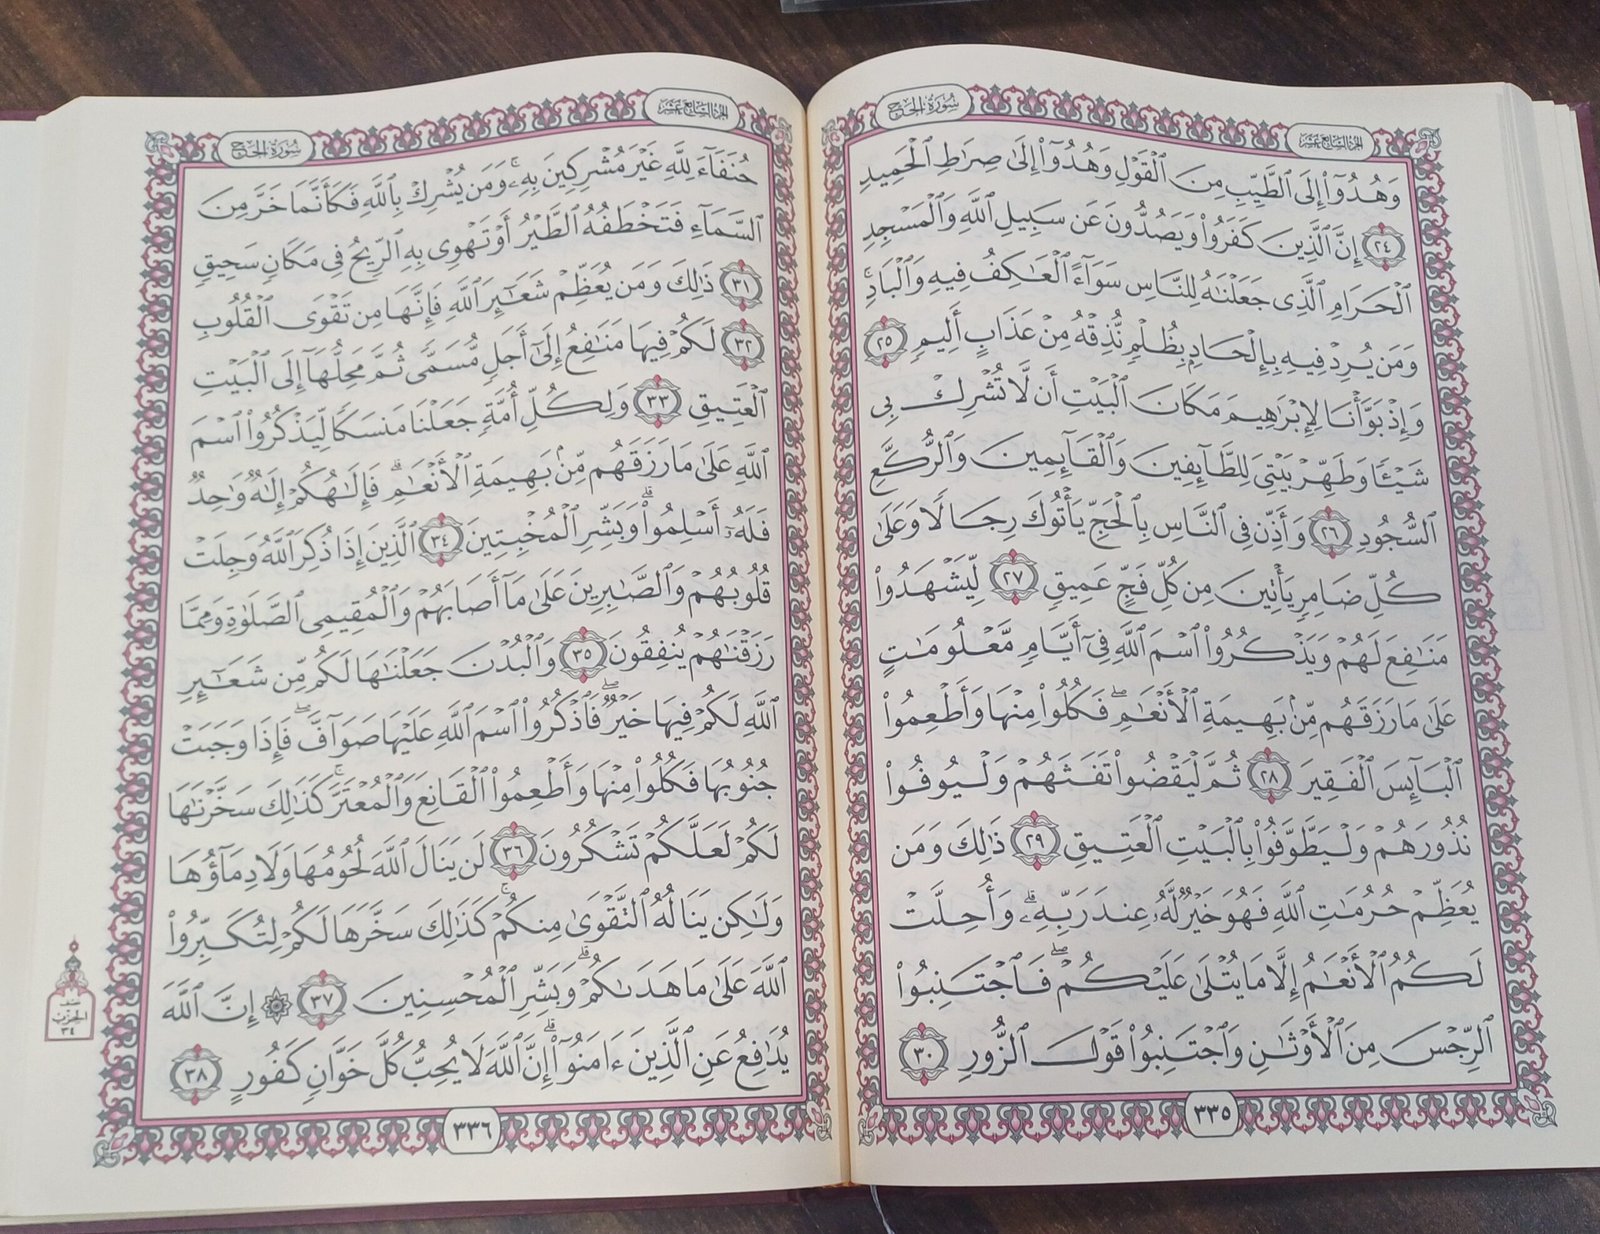 سُورَةُ الحَجِّ
الجُزءُ السَّابِعَ عَشَرَ
وَهُدُوٓاْ إِلَى ٱلطَّيِّبِ مِنَ ٱلۡقَوۡلِ وَهُدُوٓاْ إِلَىٰ صِرَٰطِ ٱلۡحَمِيدِ
٢٤ إِنَّ ٱلَّذِينَ كَفَرُواْ وَيَصُدُّونَ عَن سَبِيلِ ٱللَّهِ وَٱلۡمَسۡجِدِ
ٱلۡحَرَامِ ٱلَّذِي جَعَلۡنَٰهُ لِلنَّاسِ سَوَآءً ٱلۡعَٰكِفُ فِيهِ وَٱلۡبَادِۚ
وَمَن يُرِدۡ فِيهِ بِإِلۡحَادِۭ بِظُلۡمٖ نُّذِقۡهُ مِنۡ عَذَابٍ أَلِيمٖ ٢٥
وَإِذۡ بَوَّأۡنَا لِإِبۡرَٰهِيمَ مَكَانَ ٱلۡبَيۡتِ أَن لَّا تُشۡرِكۡ بِي
شَيۡـٔٗا وَطَهِّرۡ بَيۡتِيَ لِلطَّآئِفِينَ وَٱلۡقَآئِمِينَ وَٱلرُّكَّعِ
ٱلسُّجُودِ ٢٦ وَأَذِّن فِي ٱلنَّاسِ بِٱلۡحَجِّ يَأۡتُوكَ رِجَالٗا وَعَلَىٰ
كُلِّ ضَامِرٖ يَأۡتِينَ مِن كُلِّ فَجٍّ عَمِيقٖ ٢٧ لِّيَشۡهَدُواْ
مَنَٰفِعَ لَهُمۡ وَيَذۡكُرُواْ ٱسۡمَ ٱللَّهِ فِيٓ أَيَّامٖ مَّعۡلُومَٰتٍ
عَلَىٰ مَا رَزَقَهُم مِّنۢ بَهِيمَةِ ٱلۡأَنۡعَٰمِۖ فَكُلُواْ مِنۡهَا وَأَطۡعِمُواْ
ٱلۡبَآئِسَ ٱلۡفَقِيرَ ٢٨ ثُمَّ لۡيَقۡضُواْ تَفَثَهُمۡ وَلۡيُوفُواْ
نُذُورَهُمۡ وَلۡيَطَّوَّفُواْ بِٱلۡبَيۡتِ ٱلۡعَتِيقِ ٢٩ ذَٰلِكَۖ وَمَن
يُعَظِّمۡ حُرُمَٰتِ ٱللَّهِ فَهُوَ خَيۡرٞ لَّهُۥ عِندَ رَبِّهِۦۗ وَأُحِلَّتۡ
لَكُمُ ٱلۡأَنۡعَٰمُ إِلَّا مَا يُتۡلَىٰ عَلَيۡكُمۡۖ فَٱجۡتَنِبُواْ
ٱلرِّجۡسَ مِنَ ٱلۡأَوۡثَٰنِ وَٱجۡتَنِبُواْ قَوۡلَ ٱلزُّورِ ٣٠
٣٣٥
الجُزءُ السَّابِعَ عَشَرَ
سُورَةُ الحَجِّ
حُنَفَآءَ لِلَّهِ غَيۡرَ مُشۡرِكِينَ بِهِۦۚ وَمَن يُشۡرِكۡ بِٱللَّهِ فَكَأَنَّمَا خَرَّ مِنَ
ٱلسَّمَآءِ فَتَخۡطَفُهُ ٱلطَّيۡرُ أَوۡ تَهۡوِي بِهِ ٱلرِّيحُ فِي مَكَانٖ سَحِيقٖ
٣١ ذَٰلِكَۖ وَمَن يُعَظِّمۡ شَعَٰٓئِرَ ٱللَّهِ فَإِنَّهَا مِن تَقۡوَى ٱلۡقُلُوبِ
٣٢ لَكُمۡ فِيهَا مَنَٰفِعُ إِلَىٰٓ أَجَلٖ مُّسَمّٗى ثُمَّ مَحِلُّهَآ إِلَى ٱلۡبَيۡتِ
ٱلۡعَتِيقِ ٣٣ وَلِكُلِّ أُمَّةٖ جَعَلۡنَا مَنسَكٗا لِّيَذۡكُرُواْ ٱسۡمَ
ٱللَّهِ عَلَىٰ مَا رَزَقَهُم مِّنۢ بَهِيمَةِ ٱلۡأَنۡعَٰمِۗ فَإِلَٰهُكُمۡ إِلَٰهٞ وَٰحِدٞ
فَلَهُۥٓ أَسۡلِمُواْۗ وَبَشِّرِ ٱلۡمُخۡبِتِينَ ٣٤ ٱلَّذِينَ إِذَا ذُكِرَ ٱللَّهُ وَجِلَتۡ
قُلُوبُهُمۡ وَٱلصَّٰبِرِينَ عَلَىٰ مَآ أَصَابَهُمۡ وَٱلۡمُقِيمِي ٱلصَّلَوٰةِ وَمِمَّا
رَزَقۡنَٰهُمۡ يُنفِقُونَ ٣٥ وَٱلۡبُدۡنَ جَعَلۡنَٰهَا لَكُم مِّن شَعَٰٓئِرِ
ٱللَّهِ لَكُمۡ فِيهَا خَيۡرٞۖ فَٱذۡكُرُواْ ٱسۡمَ ٱللَّهِ عَلَيۡهَا صَوَآفَّۖ فَإِذَا وَجَبَتۡ
جُنُوبُهَا فَكُلُواْ مِنۡهَا وَأَطۡعِمُواْ ٱلۡقَانِعَ وَٱلۡمُعۡتَرَّۚ كَذَٰلِكَ سَخَّرۡنَٰهَا
لَكُمۡ لَعَلَّكُمۡ تَشۡكُرُونَ ٣٦ لَن يَنَالَ ٱللَّهَ لُحُومُهَا وَلَا دِمَآؤُهَا
وَلَٰكِن يَنَالُهُ ٱلتَّقۡوَىٰ مِنكُمۡۚ كَذَٰلِكَ سَخَّرَهَا لَكُمۡ لِتُكَبِّرُواْ
ٱللَّهَ عَلَىٰ مَا هَدَىٰكُمۡۗ وَبَشِّرِ ٱلۡمُحۡسِنِينَ ٣٧ ۞ إِنَّ ٱللَّهَ
يُدَٰفِعُ عَنِ ٱلَّذِينَ ءَامَنُوٓاْۗ إِنَّ ٱللَّهَ لَا يُحِبُّ كُلَّ خَوَّانٖ كَفُورٍ ٣٨
الحِزْب
٣٤
٣٣٦